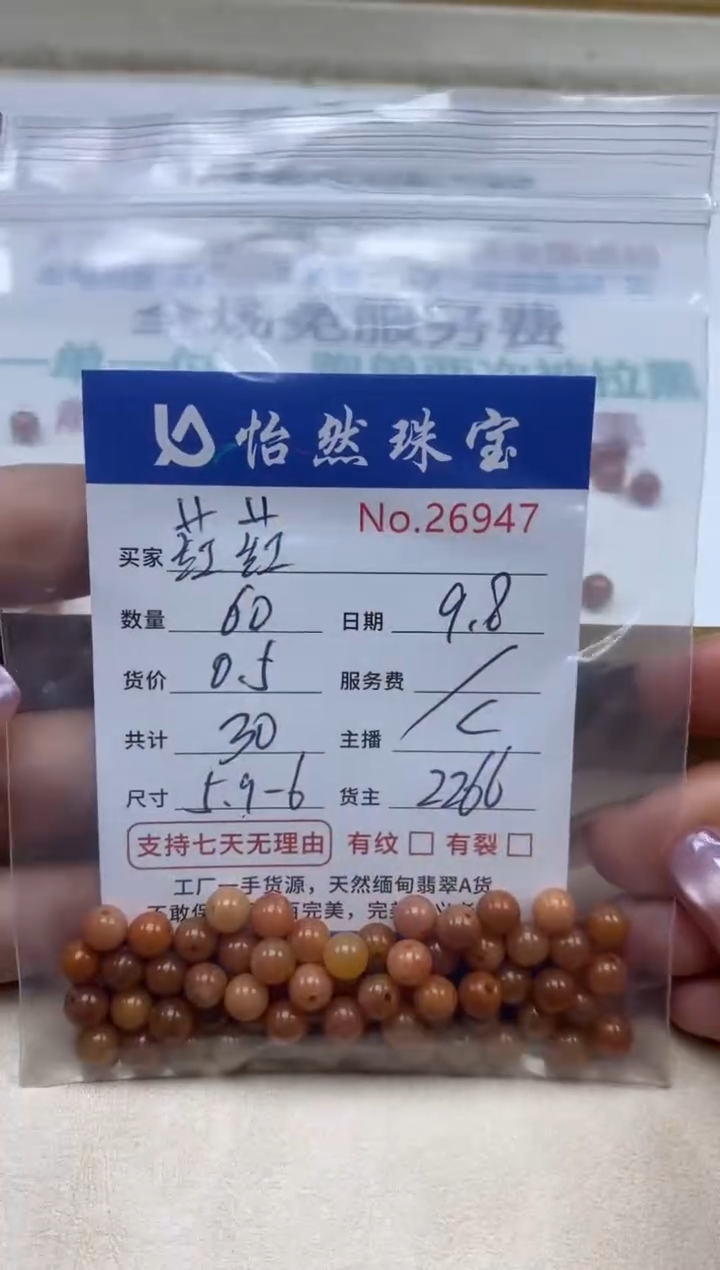 全场免服务费
怡然珠宝
No.26947
买家 荭荭
数量 60 日期 9.8
货价 0.5 服务费 /
共计 30 主播 C
尺寸 5.9-6 货主 2266
支持七天无理由 有纹 □ 有裂 □
工厂一手货源，天然缅甸翡翠A货
不敢保 百完美，完美